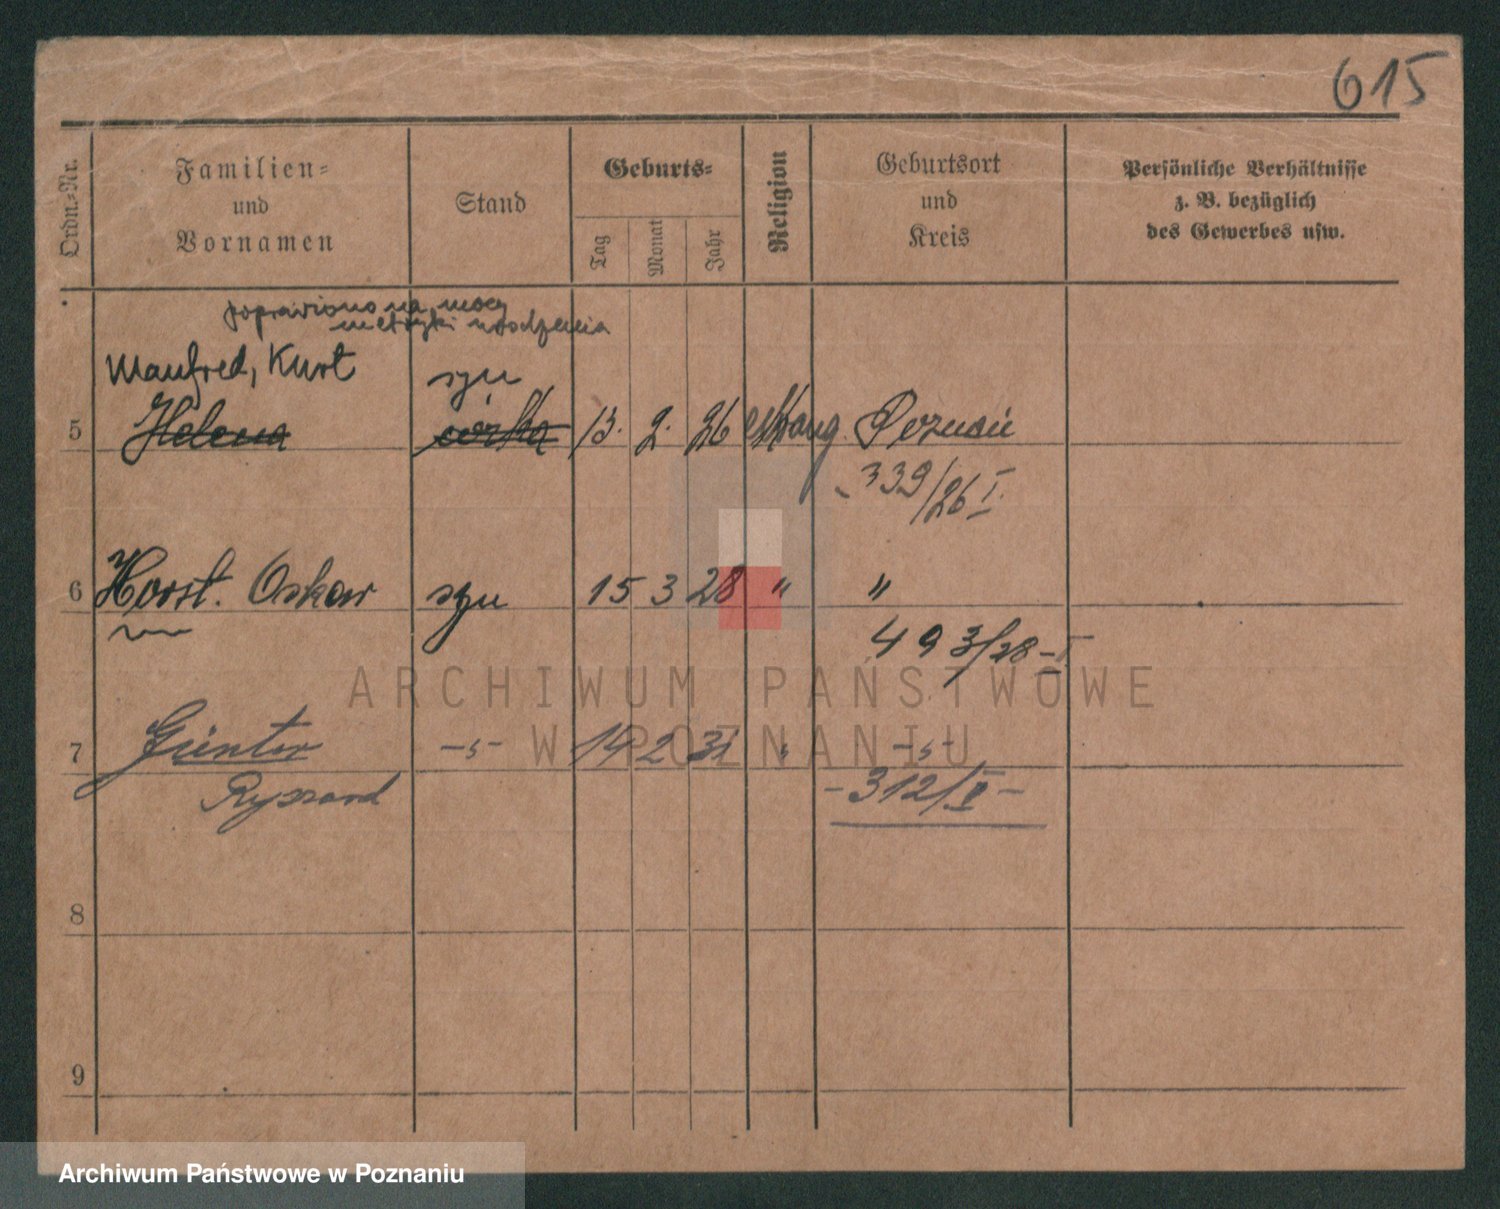 615
Ordn.-Nr.
Familien-
und
Vornamen
Stand
Geburts-
Tag
Monat
Jahr
Religion
Geburtsort
und
Kreis
Persönliche Verhältnisse
z. B. bezüglich
des Gewerbes usw.
poprawiono na mocy
metryki urodzenia
Manfred, Kurt syn
5 Helena córka 13. 2. 26 ewang. Poznań
339/26 I.
6 Horst. Oskar syn 15 3 28 " "
493/28-I
ARCHIWUM PAŃSTWOWE
W POZNANIU
7 Günter -„- 14 2 31 " -„-
Ryszard -312/II-
8
9
Archiwum Państwowe w Poznaniu